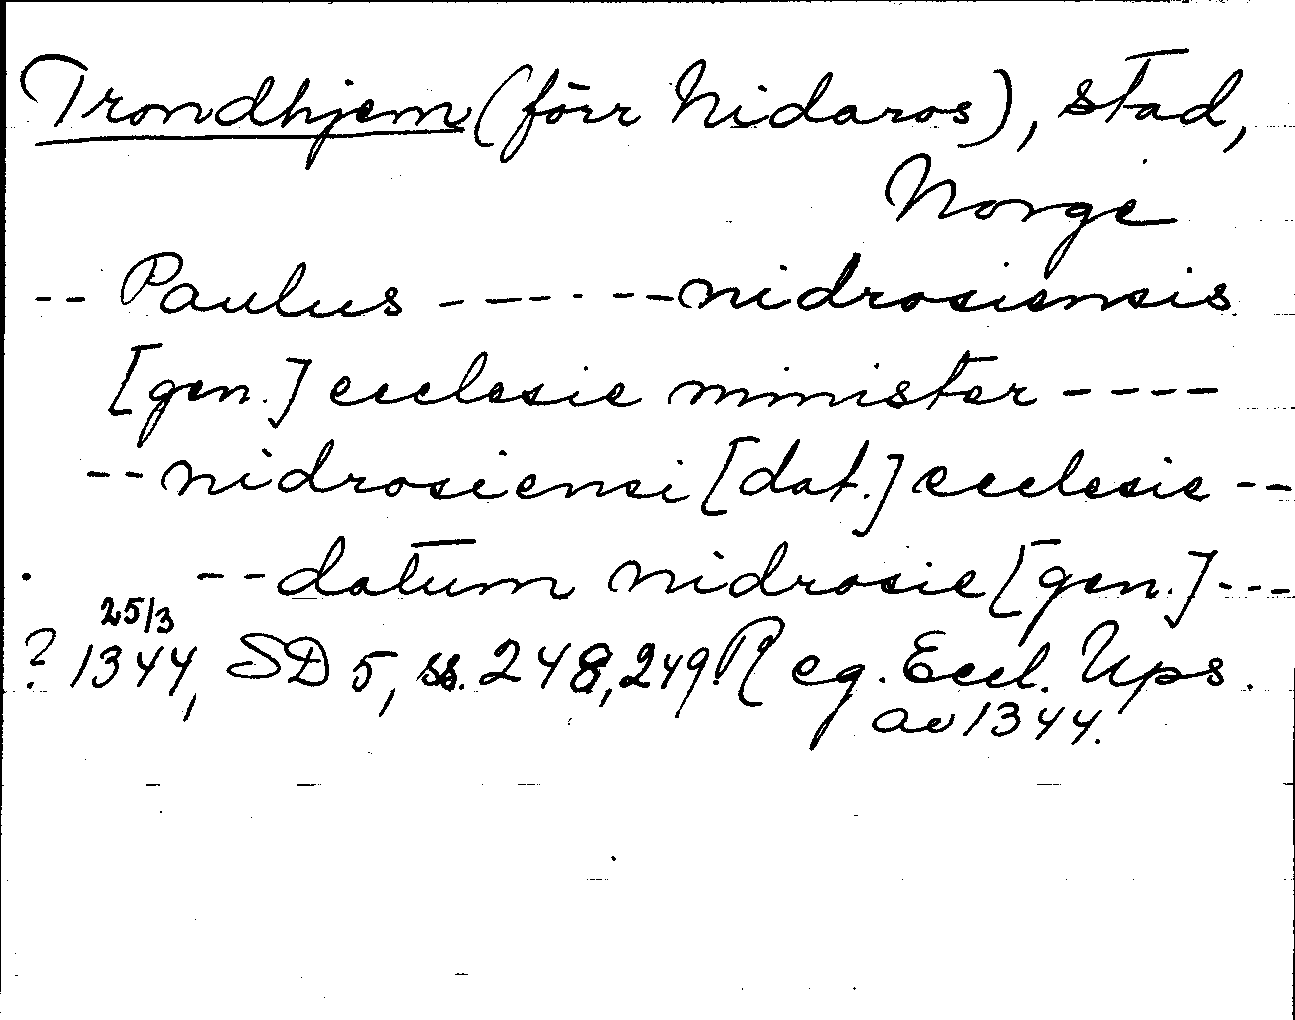 Trondhjem (förr Nidaros), stad,
Norge
-- Paulus ------- nidrosiensis
[gen.] ecclesie minister ----
-- nidrosiensi [dat.] ecclesie --
-- datum nidrosie [gen.] ---
25/3
? 1344, SD 5, ss. 248, 249. Reg. Eccl. Ups.
av 1344.